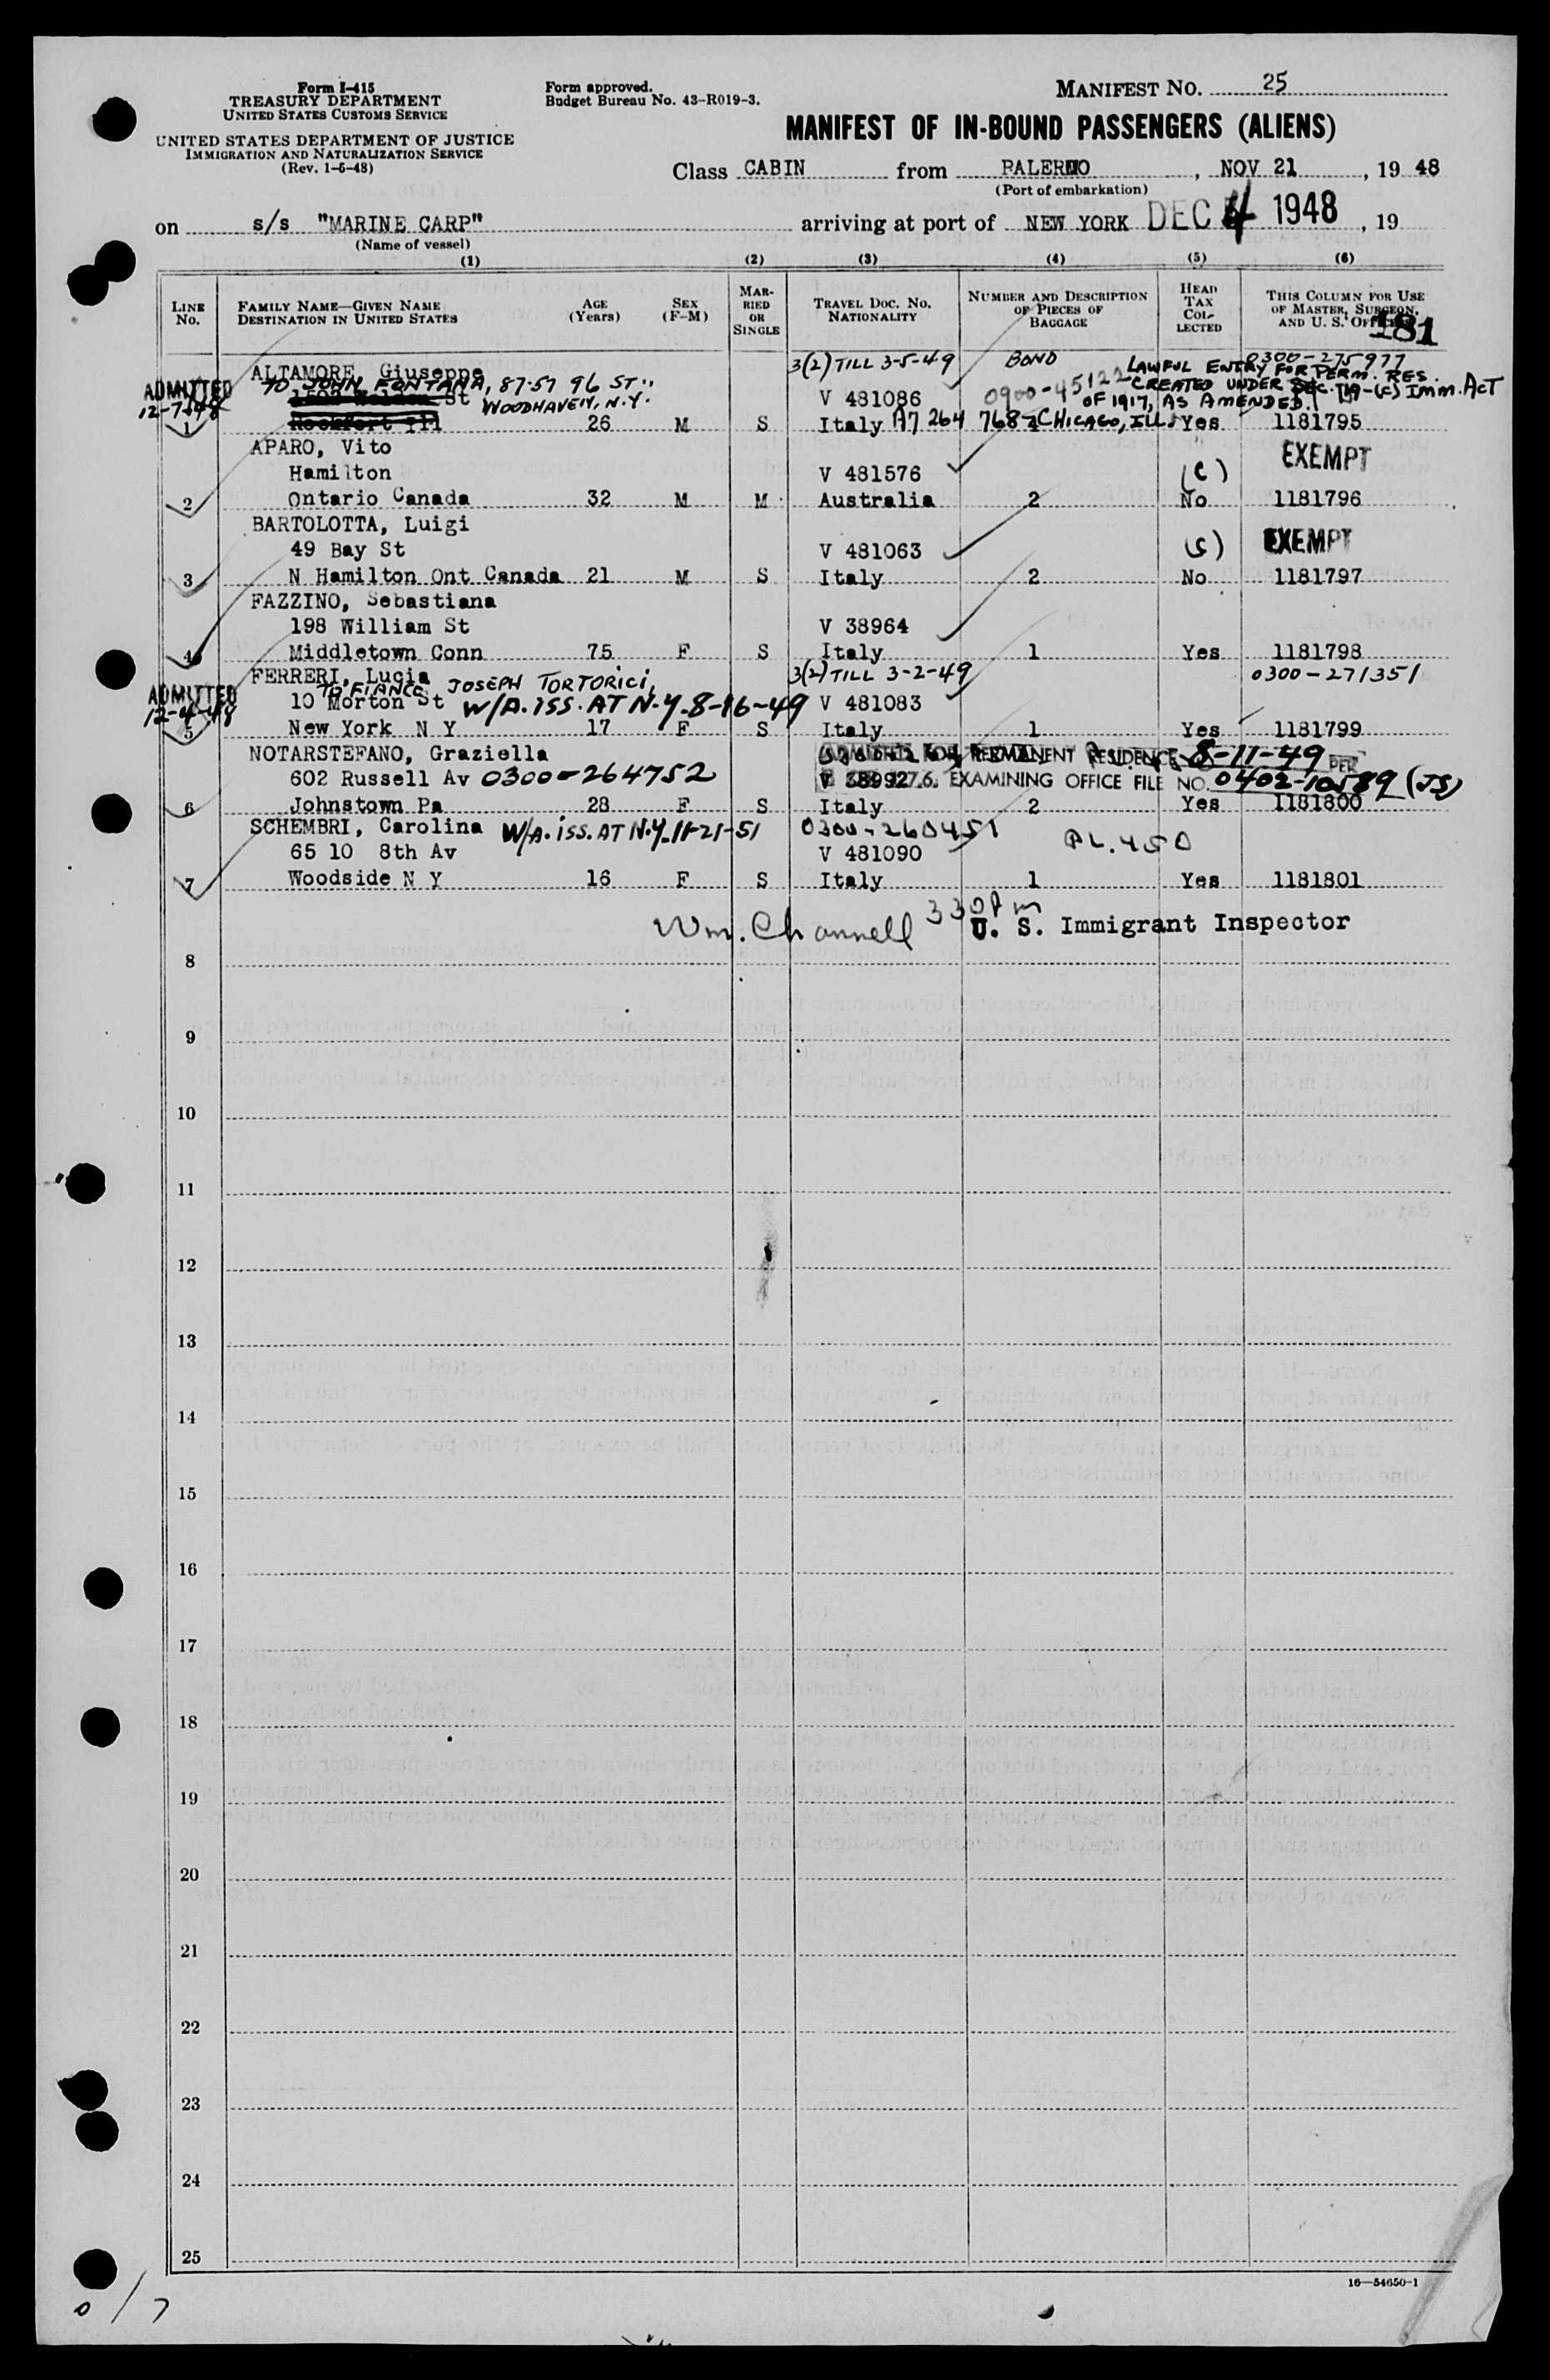 Form I-415
TREASURY DEPARTMENT
UNITED STATES CUSTOMS SERVICE
UNITED STATES DEPARTMENT OF JUSTICE
IMMIGRATION AND NATURALIZATION SERVICE
(Rev. 1-5-48)
Form approved.
Budget Bureau No. 43-R019-3.
MANIFEST NO. 25
MANIFEST OF IN-BOUND PASSENGERS (ALIENS)
Class CABIN from PALERMO, NOV 21, 19 48
(Port of embarkation)
on s/s "MARINE CARP" arriving at port of NEW YORK DEC 4 1948, 19
(Name of vessel)
(1) (2) (3) (4) (5) (6)
LINE NO.
FAMILY NAME—GIVEN NAME
DESTINATION IN UNITED STATES
AGE (Years)
SEX (F-M)
MARRIED OR SINGLE
TRAVEL DOC. NO. NATIONALITY
NUMBER AND DESCRIPTION OF PIECES OF BAGGAGE
HEAD TAX COLLECTED
THIS COLUMN FOR USE OF MASTER, SURGEON, AND U. S. OFFICERS
181
3(2) TILL 3-5-49 BOND 0300-275977
ALTAMORE, Giuseppe LAWFUL ENTRY FOR PERM. RES.
ADMITTED TO JOHN FONTANA, 87-57 96 ST., 0900-45122 CREATED UNDER SEC. 19-(c) Imm. ACT
12-7-48 St WOODHAVEN, N.Y. V 481086 OF 1917, AS AMENDED.
1 Rockfort Ill 26 M S Italy A7 264 768 CHICAGO, ILL. Yes 1181795
APARO, Vito EXEMPT
Hamilton V 481576 (C)
2 Ontario Canada 32 M M Australia 2 No 1181796
BARTOLOTTA, Luigi
49 Bay St V 481063 (S) EXEMPT
3 N Hamilton Ont Canada 21 M S Italy 2 No 1181797
FAZZINO, Sebastiana
198 William St V 38964
4 Middletown Conn 75 F S Italy 1 Yes 1181798
FERRERI, Lucia 3(2) TILL 3-2-49 0300-271351
ADMITTED TO FIANCE, JOSEPH TORTORICI,
12-4-48 10 Morton St W/A. ISS. AT N.Y. 8-16-49 V 481083
5 New York N Y 17 F S Italy 1 Yes 1181799
NOTARSTEFANO, Graziella ADMITTED FOR PERMANENT RESIDENCE 8-11-49 PER
602 Russell Av 0300-264752 V 38992 EXAMINING OFFICE FILE NO. 0402-10589 (JS)
6 Johnstown Pa 28 F S Italy 2 Yes 1181800
SCHEMBRI, Carolina W/A. ISS. AT N.Y. 11-21-51 0300-260451
65 10 8th Av V 481090 PL. 450
7 Woodside N Y 16 F S Italy 1 Yes 1181801
Wm. Channell 330 Pm U. S. Immigrant Inspector
8
9
10
11
12
13
14
15
16
17
18
19
20
21
22
23
24
25
16—54650-1